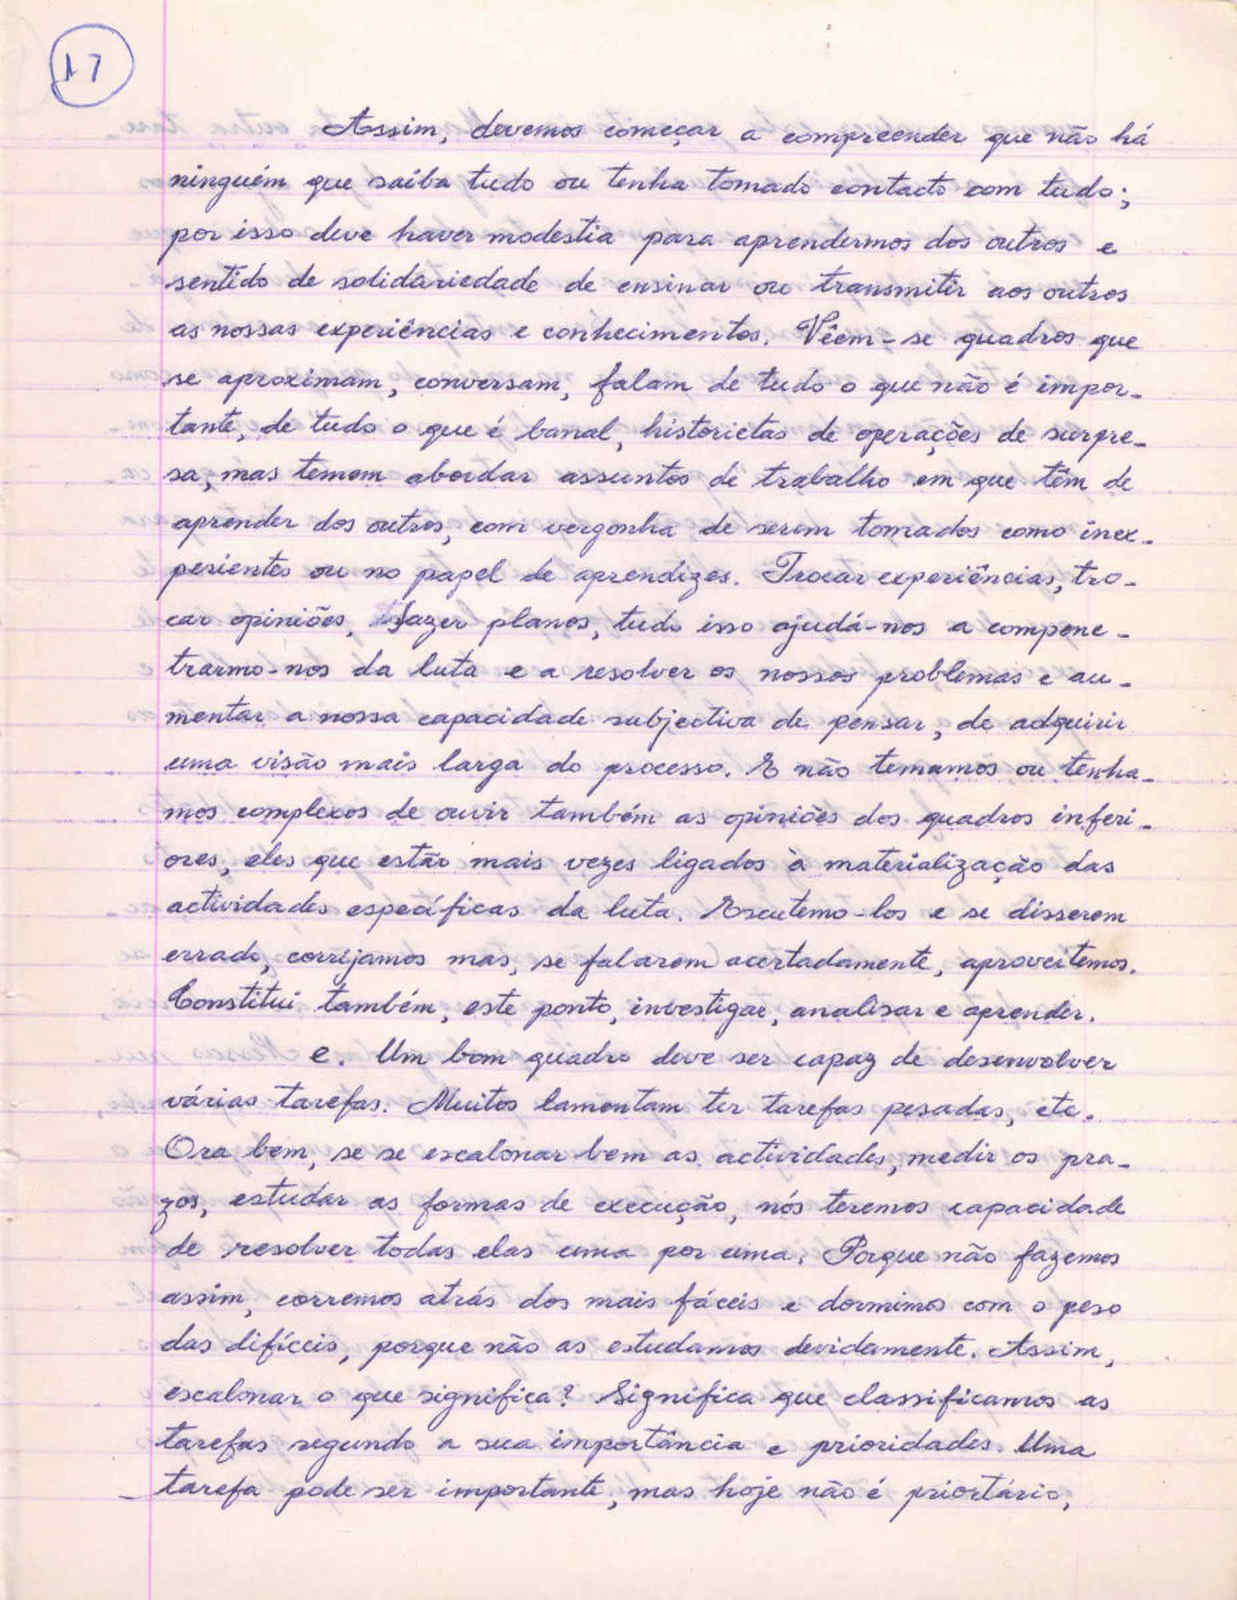 17
Assim, devemos começar a compreender que não há
ninguém que saiba tudo ou tenha tomado contacto com tudo;
por isso deve haver modestia para aprendermos dos outros e
sentido de solidariedade de ensinar ou transmitir aos outros
as nossas experiências e conhecimentos. Vêem-se quadros que
se aproximam, conversam, falam de tudo o que não é impor-
tante, de tudo o que é banal, historietas de operações de surpre-
sa, mas temem abordar assuntos de trabalho em que têm de
aprender dos outros, com vergonha de serem tomados como inex-
perientes ou no papel de aprendizes. Trocar experiências, tro-
car opiniões, fazer planos, tudo isso ajudá-nos a compene-
trarmo-nos da luta e a resolver os nossos problemas e au-
mentar a nossa capacidade subjectiva de pensar, de adquirir
uma visão mais larga do processo. E não temamos ou tenha-
mos complexos de ouvir também as opiniões dos quadros inferi-
ores, eles que estão mais vezes ligados à materialização das
actividades específicas da luta. Escutemo-los e se disserem
errado, corrijamos mas, se falarem acertadamente, aproveitemos.
Constitui também, este ponto, investigar, analisar e aprender.
e. Um bom quadro deve ser capaz de desenvolver
várias tarefas. Muitos lamentam ter tarefas pesadas, etc.
Ora bem, se se escalonar bem as actividades, medir os pra-
zos, estudar as formas de execução, nós teremos capacidade
de resolver todas elas uma por uma. Porque não fazemos
assim, corremos atrás dos mais fáceis e dormimos com o peso
das difíceis, porque não as estudamos devidamente. Assim,
escalonar o que significa? Significa que classificamos as
tarefas segundo a sua importância e prioridades. Uma
tarefa pode ser importante, mas hoje não é priortário,